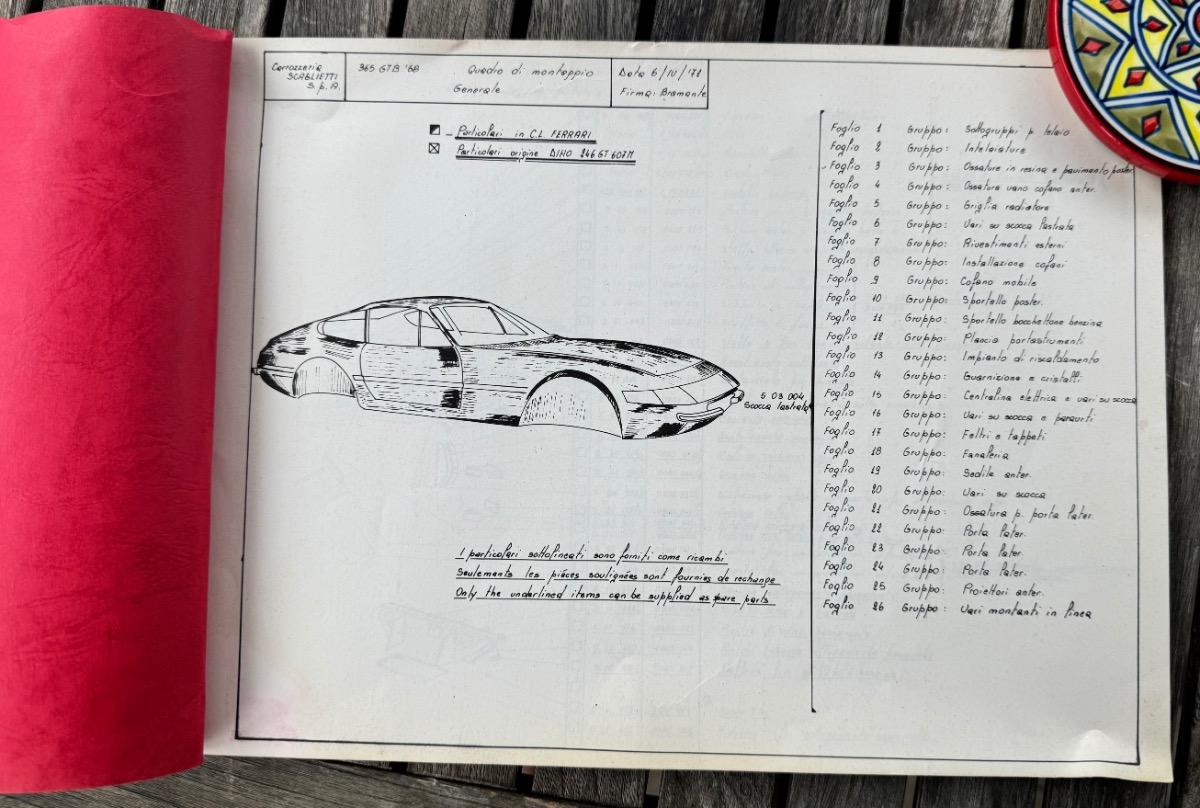 Carrozzeria
SCAGLIETTI
S.p.A.
365 GTB '68 Quadro di montaggio
Generale
Data 6/IV/'71
Firma: Bramante
- Particolari in C.L. FERRARI
Particolari origine DINO 246 GT 607M
5 03 004
Scocca lastrata
I particolari sottolineati sono forniti come ricambi
Seulements les piéces soulignées sont fournies de rechange
Only the underlined items can be supplied as spare parts
Foglio 1 Gruppo: Sottogruppi p. telaio
Foglio 2 Gruppo: Intelaiature
Foglio 3 Gruppo: Ossature in resina e pavimento poster.
Foglio 4 Gruppo: Ossatura vano cofano anter.
Foglio 5 Gruppo: Griglia radiatore
Foglio 6 Gruppo: Vari su scocca lastrata
Foglio 7 Gruppo: Rivestimenti esterni
Foglio 8 Gruppo: Installazione cofani
Foglio 9 Gruppo: Cofano mobile
Foglio 10 Gruppo: Sportello poster.
Foglio 11 Gruppo: Sportello bocchettone benzina
Foglio 12 Gruppo: Plancia portastrumenti
Foglio 13 Gruppo: Impianto di riscaldamento
Foglio 14 Gruppo: Guarnizione e cristalli
Foglio 15 Gruppo: Centralina elettrica e vari su scocca
Foglio 16 Gruppo: Vari su scocca e paraurti
Foglio 17 Gruppo: Feltri e tappeti
Foglio 18 Gruppo: Fanaleria
Foglio 19 Gruppo: Sedile anter.
Foglio 20 Gruppo: Vari su scocca
Foglio 21 Gruppo: Ossatura p. porta later.
Foglio 22 Gruppo: Porta later.
Foglio 23 Gruppo: Porta later.
Foglio 24 Gruppo: Porta later.
Foglio 25 Gruppo: Proiettori anter.
Foglio 26 Gruppo: Vari montanti in linea